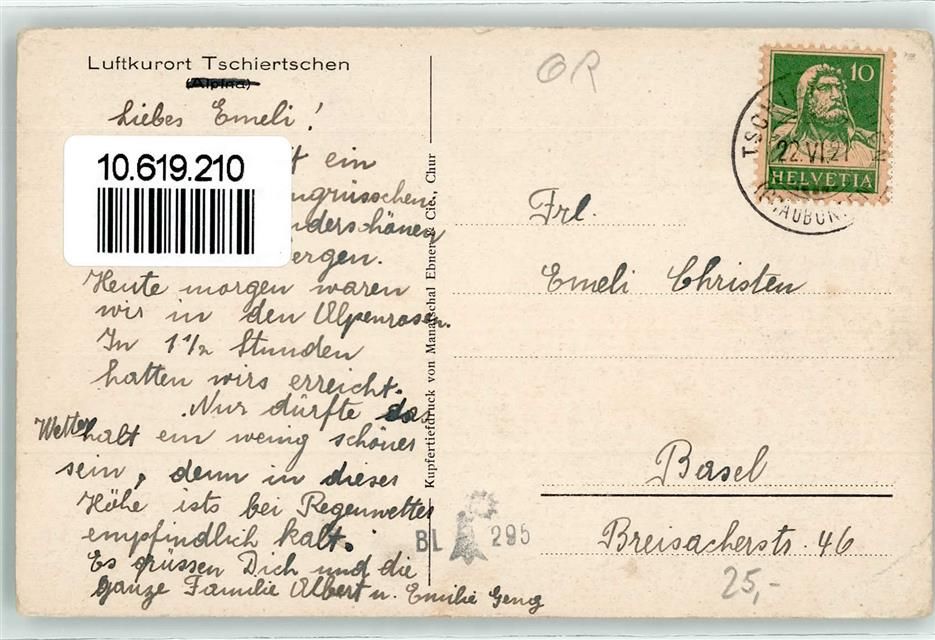 Luftkurort Tschiertschen
(Alpina)
Liebes Emeli!
10.619.210
ein
ngrüsschen
nderschönen
ergen.
Heute morgen waren
wir in den Alpenrosen.
In 1 1/2 Stunden
hatten wirs erreicht.
Nur dürfte das
Wetter halt ein wenig schöner
sein, denn in dieser
Höhe ists bei Regenwetter
empfindlich kalt.
Es grüssen Dich und die
ganze Familie Albert u. Emilie Geng
Kupfertiefdruck von Manatschal Ebner & Cie., Chur
BL 295
GR
10
HELVETIA
22.VI.21
Frl.
Emeli Christen
Basel
Breisacherstr. 46
25,-